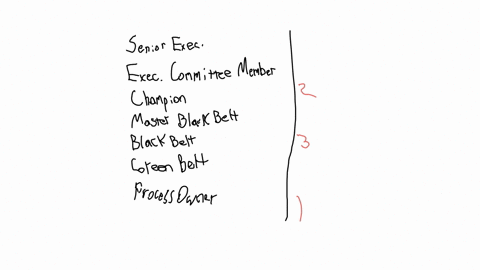 Senior Exec.
Exec. Committee Member
2
Champion
Master Black Belt
3
Black Belt
Green Belt
Process Owner
1